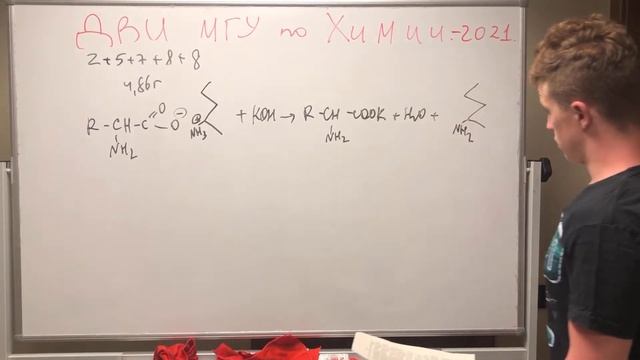 ДВИ МГУ по Химии-2021.
2+5+7+8+8
4,86г
R-CH-C=O-O⊖ ⊕NH₃ + KOH → R-CH-COOK + H₂O + NH₂
NH₂ NH₂